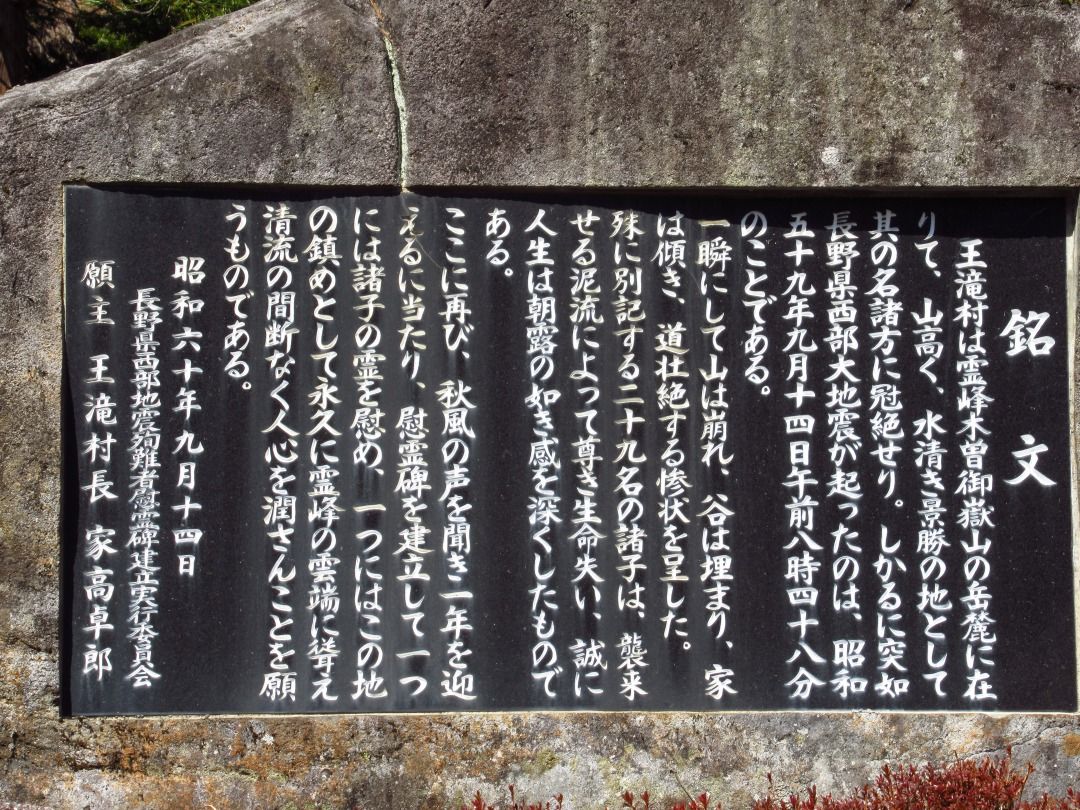 銘文
王滝村は霊峰木曽御嶽山の岳麓に在
りて、山高く、水清き景勝の地として
其の名諸方に冠絶せり。しかるに突如
長野県西部大地震が起ったのは、昭和
五十九年九月十四日午前八時四十八分
のことである。
一瞬にして山は崩れ、谷は埋まり、家
は傾き、道壮絶する惨状を呈した。
殊に別記する二十九名の諸子は、襲来
せる泥流によって尊き生命失い、誠に
人生は朝露の如き感を深くしたもので
ある。
ここに再び、秋風の声を聞き一年を迎
えるに当たり、慰霊碑を建立して一つ
には諸子の霊を慰め、一つにはこの地
の鎮めとして永久に霊峰の雲端に聳え
清流の間断なく人心を潤さんことを願
うものである。
昭和六十年九月十四日
長野県西部地震殉難者慰霊碑建立実行委員会
願主 王滝村長 家高卓郎